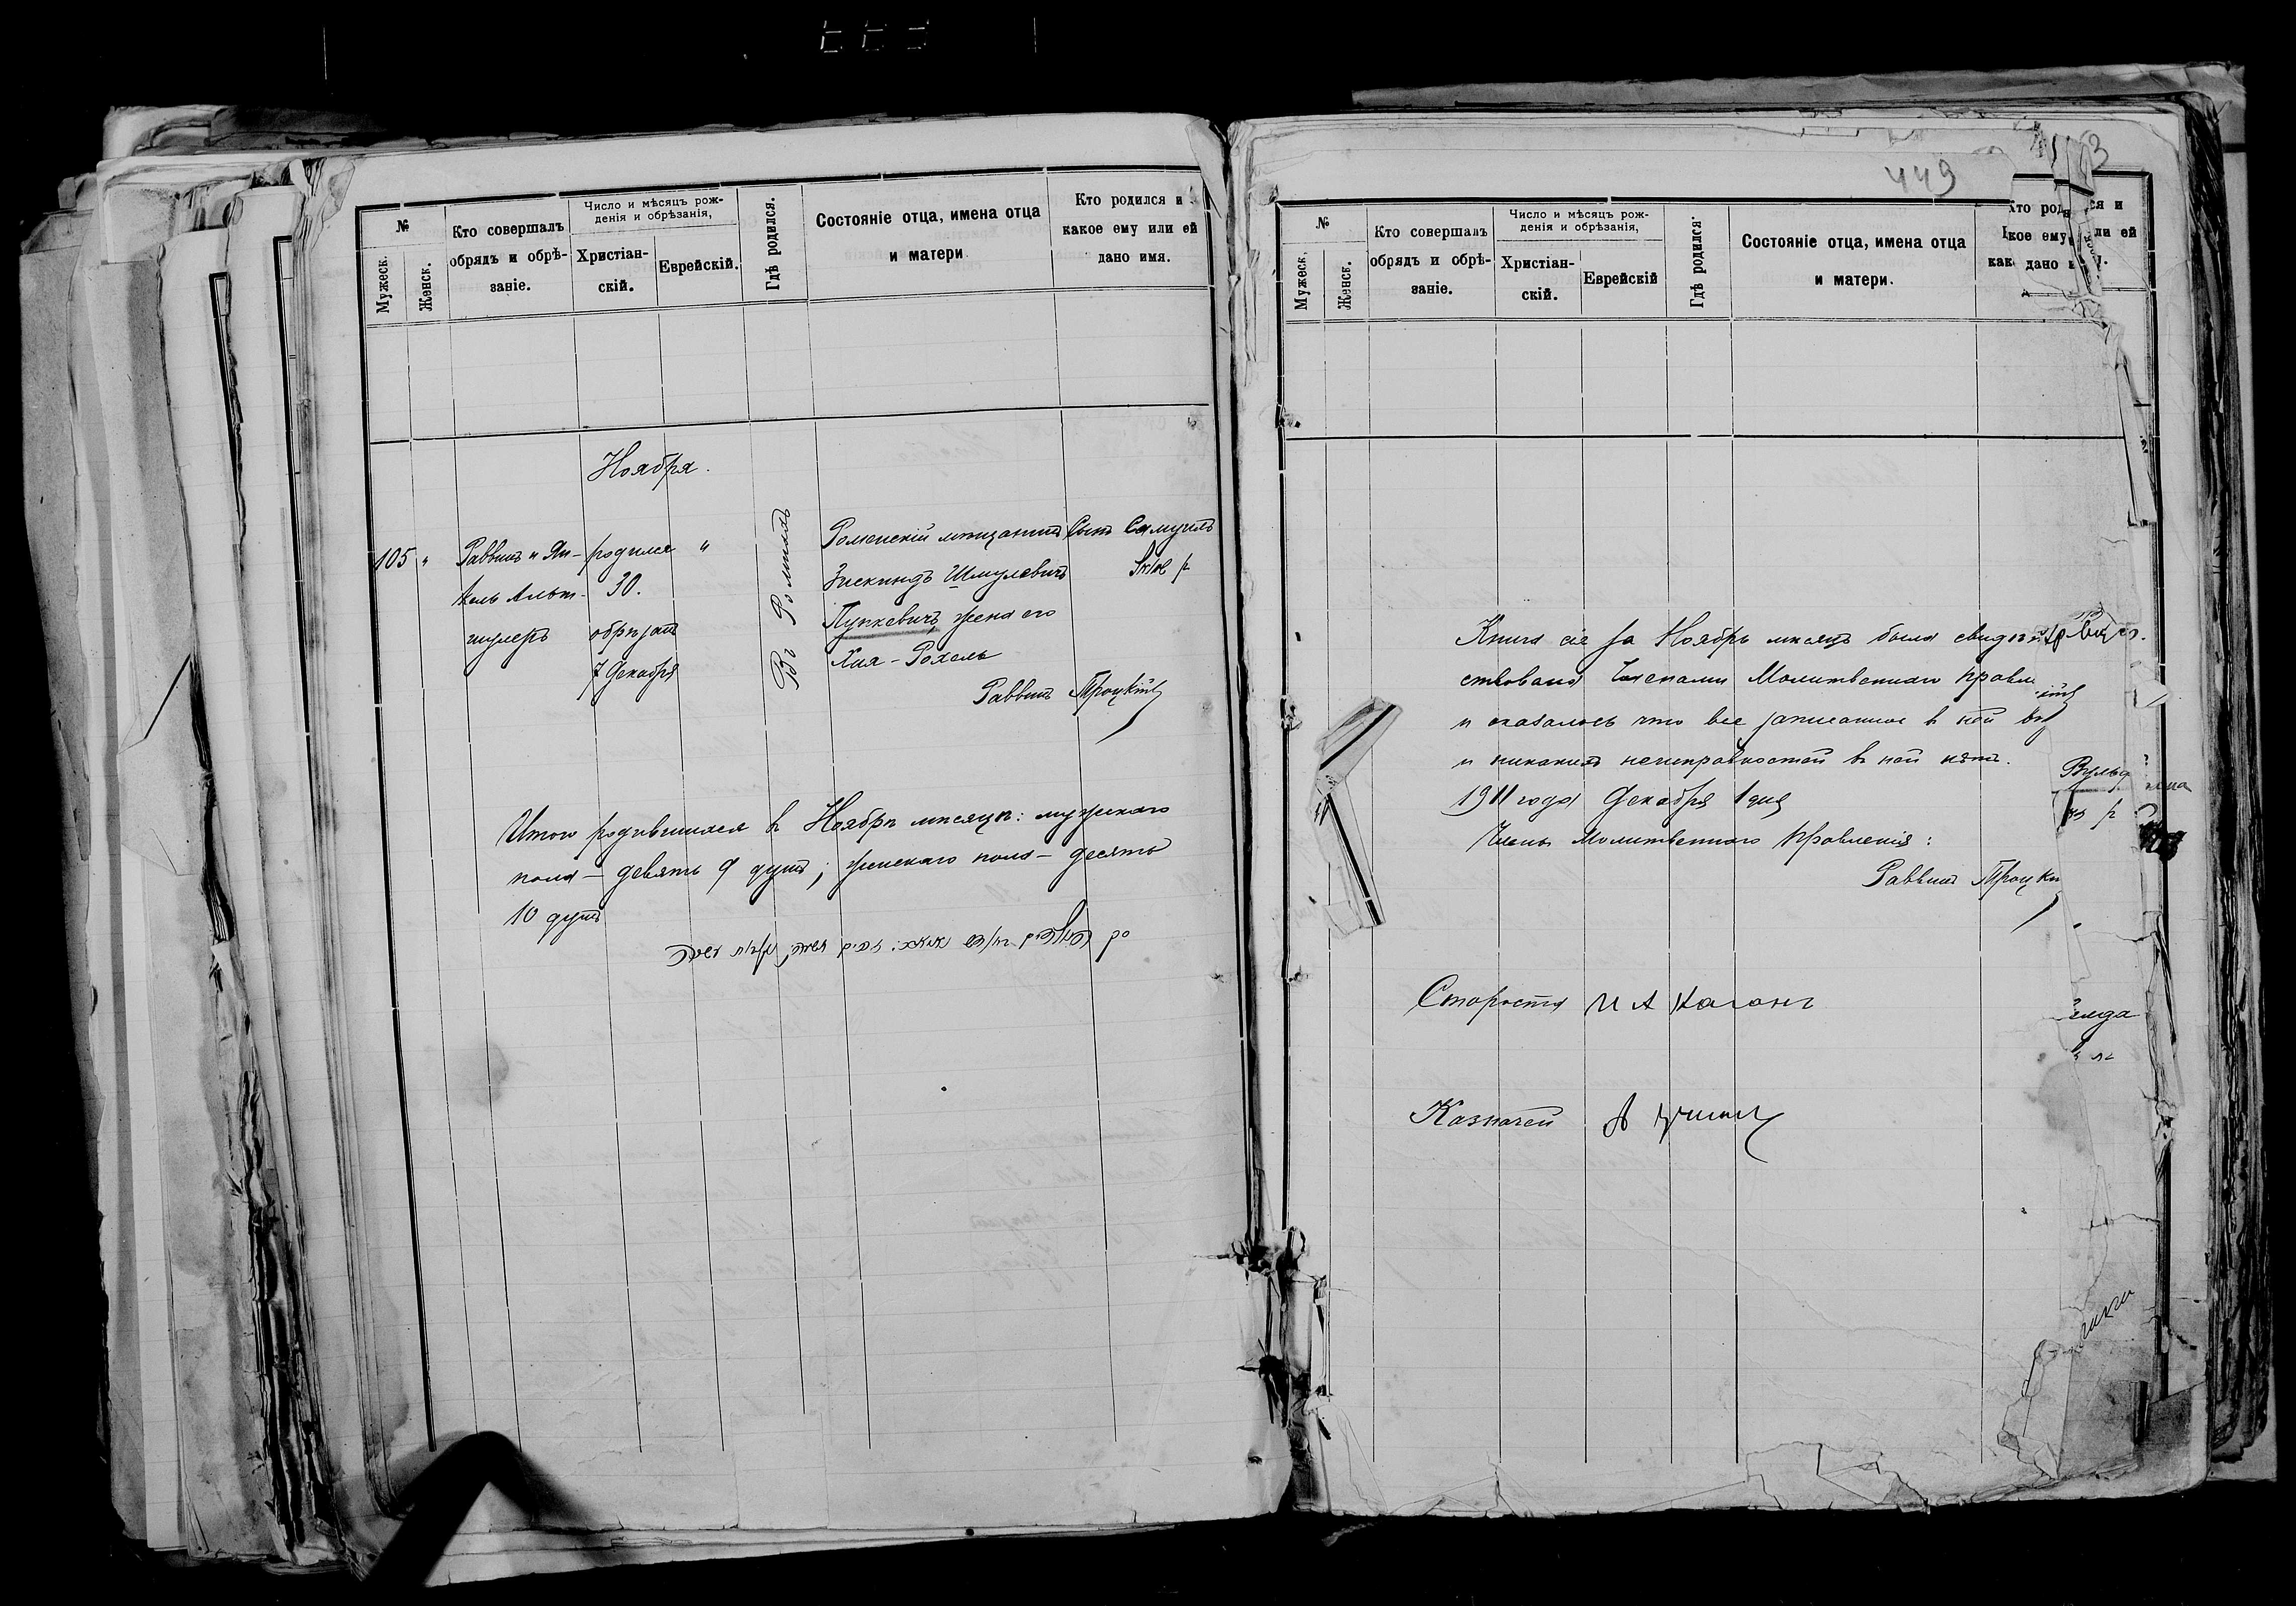 №
Мужеск.
Женск.
Кто совершалъ
обрядъ и обрѣ-
заніе.
Число и мѣсяцъ рож-
денія и обрѣзанія,
Христіан-
скій.
Еврейскій.
Гдѣ родился.
Состояніе отца, имена отца
и матери
Кто родился и
какое ему или ей
дано имя.
Ноября.
105 "
Раввинъ и Ян-
кель Альт-
шулеръ
родился "
30.
обрѣзанъ
7 Декабря
Въ Ромнахъ
Роменскій мѣщанинъ
Зискиндъ Шмулевичъ
Пупкевичъ, жена его
Хая-Рохель
Сынъ Самуилъ
Раввинъ Троцкій
Итого родившихся въ Ноябрѣ мѣсяцѣ: мужскаго
пола - девять 9 душъ; женскаго пола - десять
10 душъ
449
№
Мужеск.
Женск.
Кто совершалъ
обрядъ и обрѣ-
заніе.
Число и мѣсяцъ рож-
денія и обрѣзанія,
Христіан-
скій.
Еврейскій
Гдѣ родился.
Состояніе отца, имена отца
и матери.
Книга сія за Ноябрь мѣсяцъ была свидѣтель-
ствована Членами Молитвеннаго Правле
и оказалось что все записанное въ ней
и никакихъ неисправностей въ ней нѣтъ.
1911 года Декабря 1 дня
Члены Молитвеннаго Правленія:
Раввинъ Троцкі
Староста И А Каганъ
Казначей А